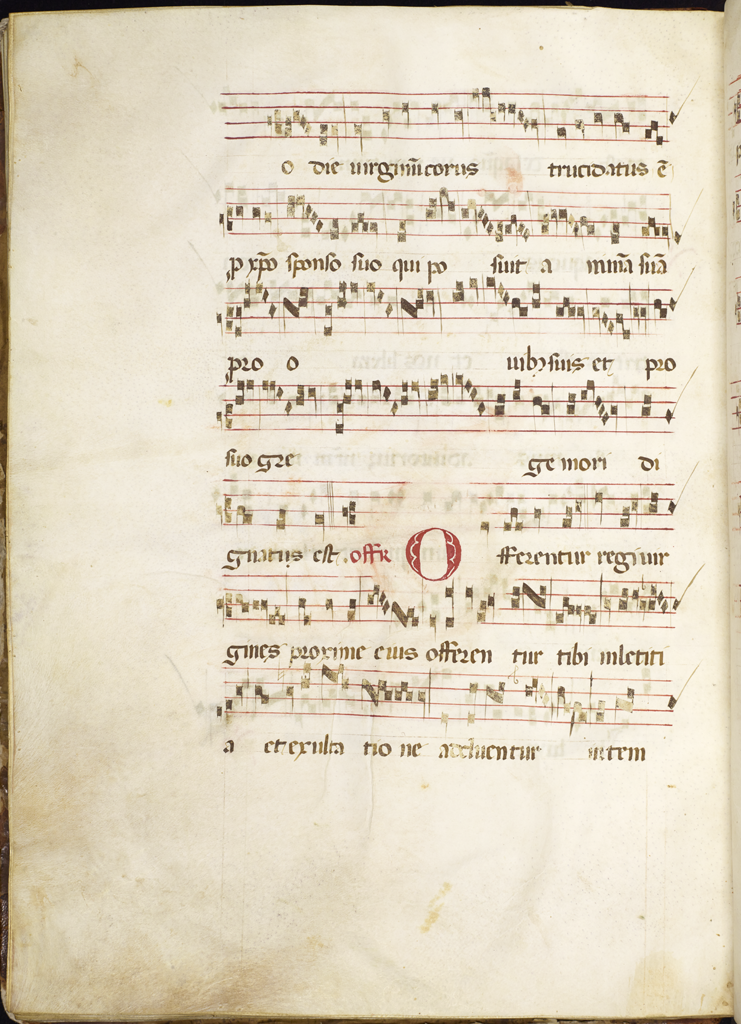 o die uirginū corus trucidatus ē
p xp̄o sponso suo qui po suit a nimā suā
pro o uibꝫ suis et pro
suo gre ge mori di
gnatus est. offr̄ O fferentur regi uir
gines proxime eius offeren tur tibi inletiti
a et exulta tio ne adducentur in tem